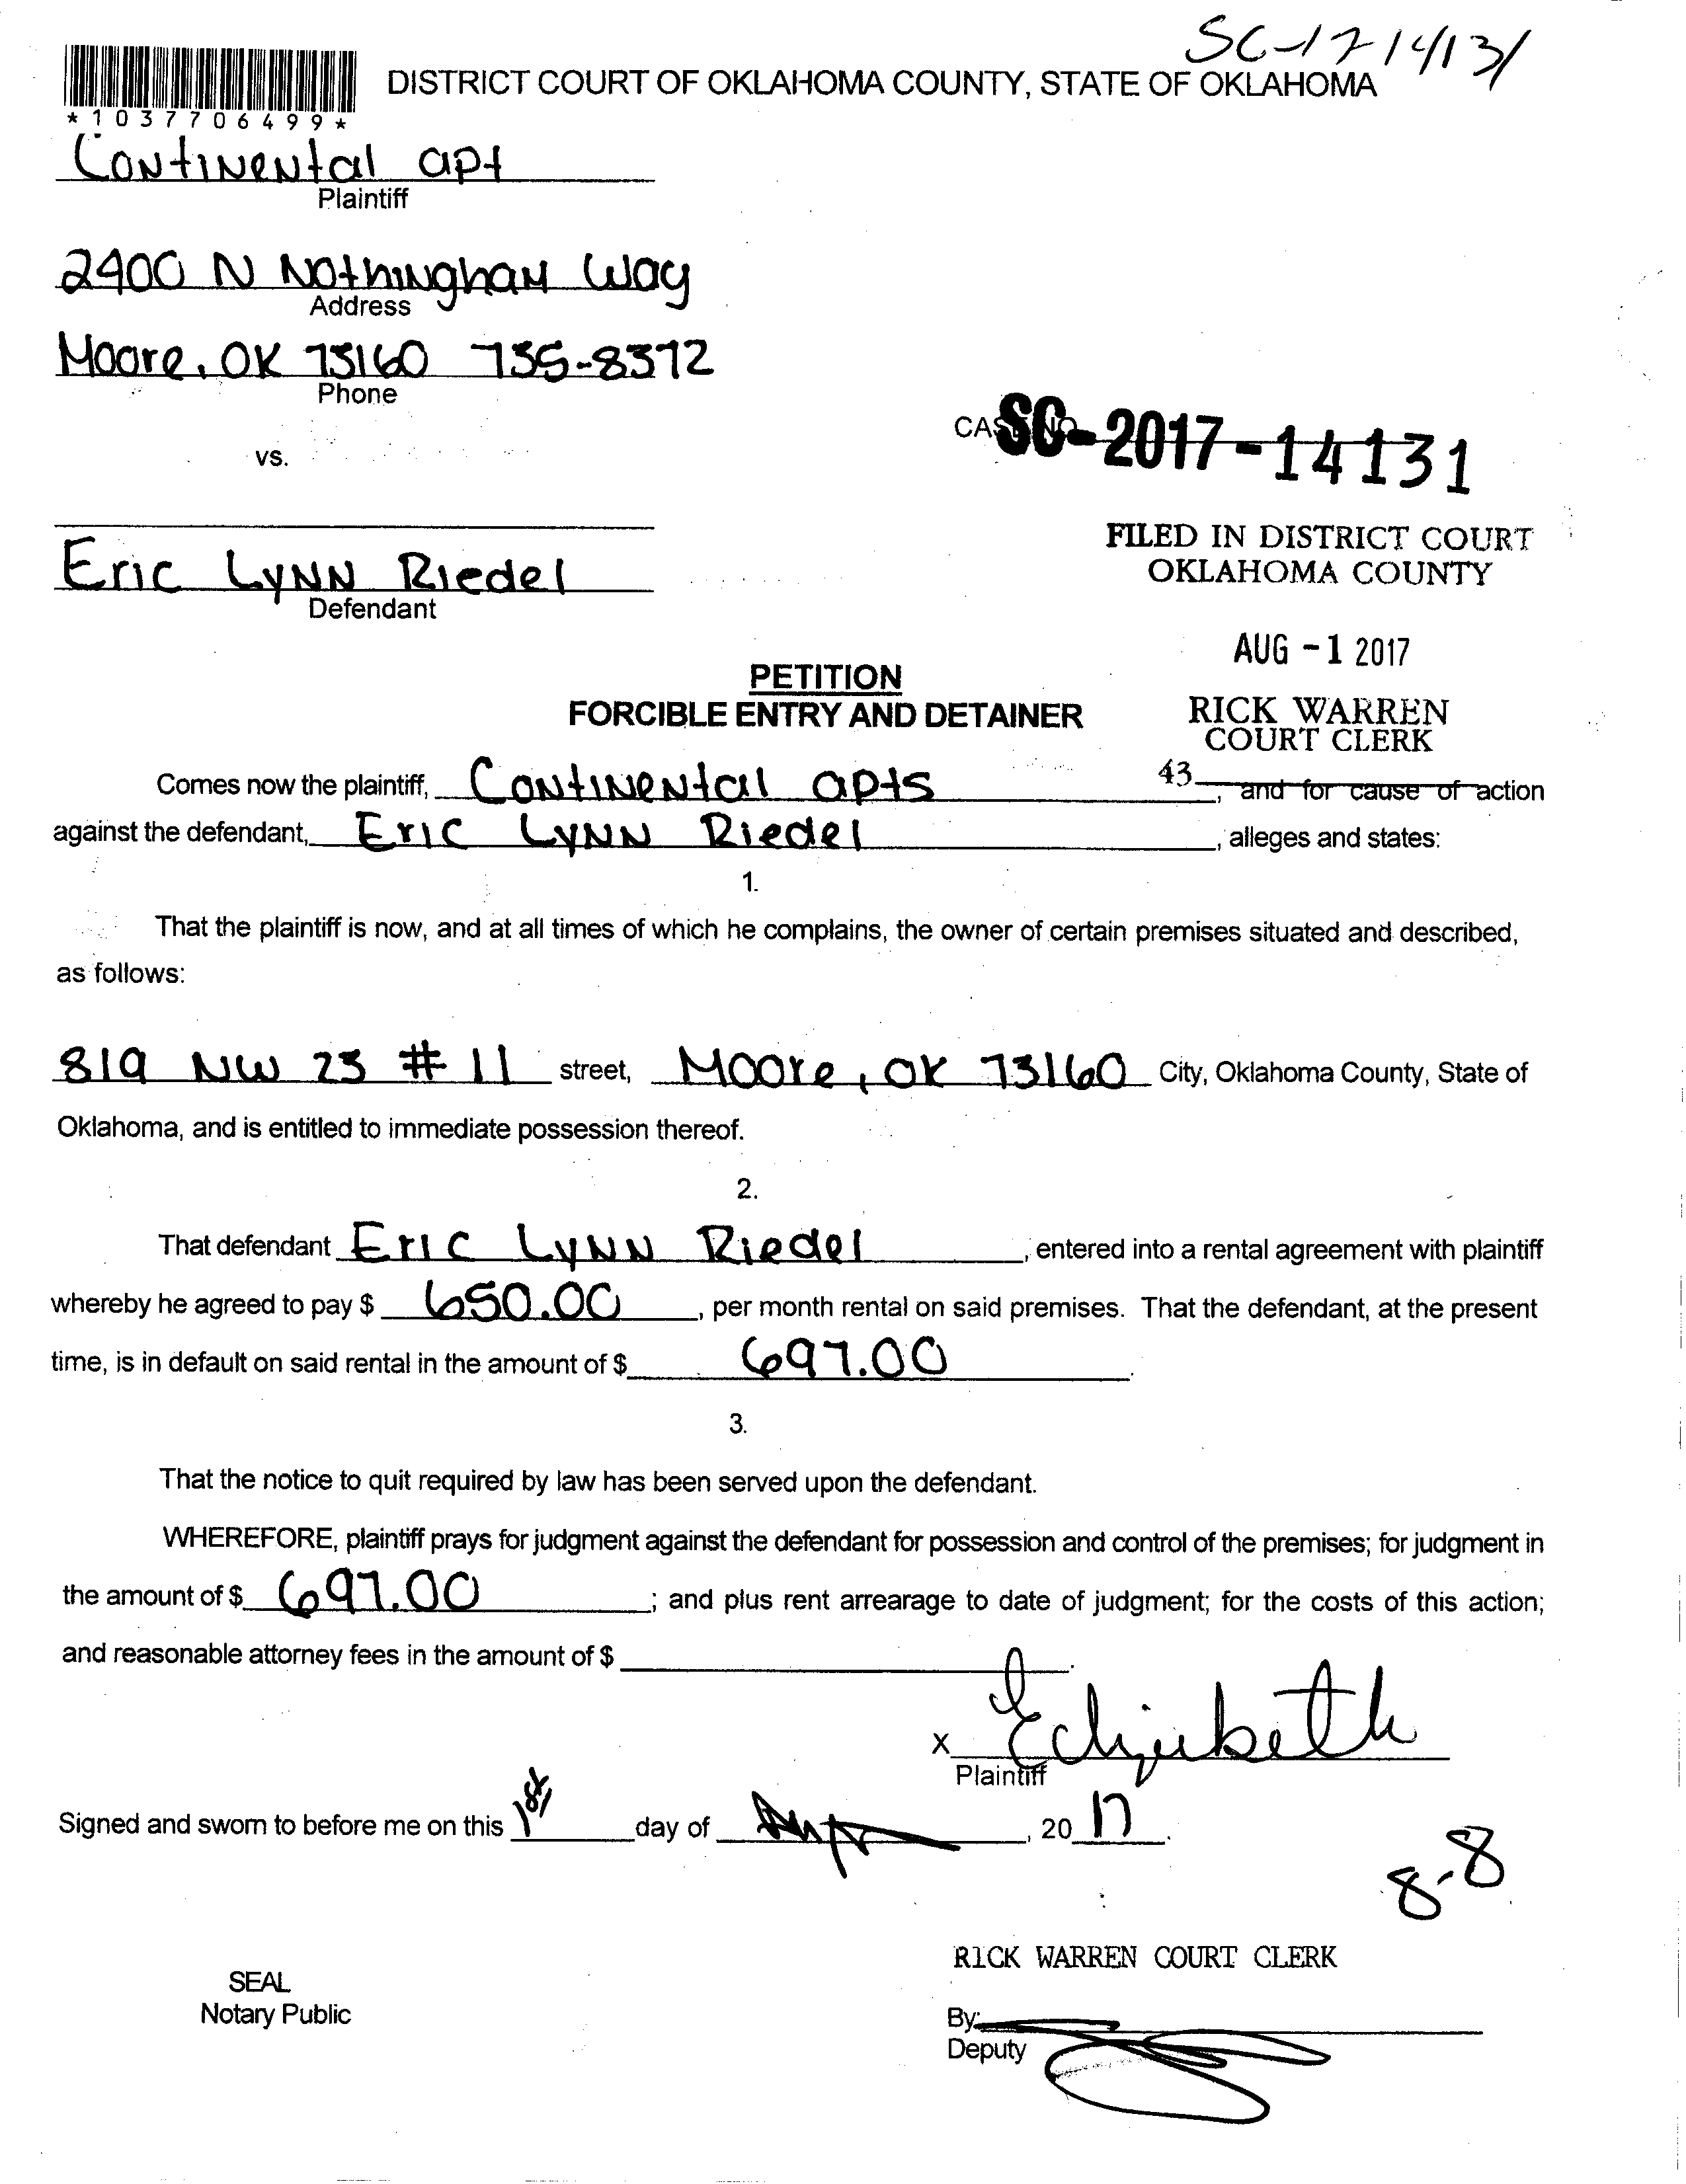 SC-17-14131
DISTRICT COURT OF OKLAHOMA COUNTY, STATE OF OKLAHOMA
*1037706499*
Continental apt
Plaintiff
2400 N Nothingham Way
Address
Moore, OK 73160 735-8372
Phone
vs.
SC-2017-14131
FILED IN DISTRICT COURT
OKLAHOMA COUNTY
Eric Lynn Riedel
Defendant
AUG -1 2017
PETITION
FORCIBLE ENTRY AND DETAINER
RICK WARREN
COURT CLERK
43
Comes now the plaintiff, Continental apts, and for cause of action
against the defendant, Eric Lynn Riedel, alleges and states:
1.
That the plaintiff is now, and at all times of which he complains, the owner of certain premises situated and described,
as follows:
819 NW 23 # 11 street, Moore, OK 73160 City, Oklahoma County, State of
Oklahoma, and is entitled to immediate possession thereof.
2.
That defendant Eric Lynn Riedel, entered into a rental agreement with plaintiff
whereby he agreed to pay $ 650.00, per month rental on said premises. That the defendant, at the present
time, is in default on said rental in the amount of $ 697.00.
3.
That the notice to quit required by law has been served upon the defendant.
WHEREFORE, plaintiff prays for judgment against the defendant for possession and control of the premises; for judgment in
the amount of $ 697.00; and plus rent arrearage to date of judgment; for the costs of this action;
and reasonable attorney fees in the amount of $
X
Plaintiff
Signed and sworn to before me on this 1st day of , 20 17.
8-8
RICK WARREN COURT CLERK
SEAL
Notary Public
By:
Deputy